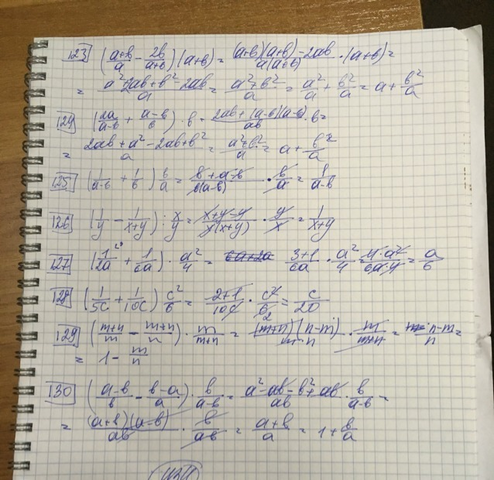 123 (a+b/a - 2b/a+b)(a+b) = (a+b)(a+b)-2ab/a(a+b) · (a+b) =
= a²+2ab+b²-2ab/a = a²+b²/a = a²/a + b²/a = a + b²/a
124 (2a/a-b + a-b/b) · b = 2ab+(a-b)(a-b)/ab · b =
= 2ab+a²-2ab+b²/a = a²+b²/a = a + b²/a
125 (1/a-b + 1/b) b/a = b+a-b/b(a-b) · b/a = 1/a-b
126 (1/y - 1/x+y) : x/y = x+y-y/y(x+y) · y/x = 1/x+y
127 (1/2a + 1/6a) · a²/4 = 3+1/6a · a²/4 = 4·a²/6a·4 = a/6
128 (1/5c + 1/10c) c²/6 = 2+1/10c · c²/6 = c/20
129 (m+n/m - m+n/n) · m/m+n = (m+n)(n-m)/m·n · m/m+n = n-m/n =
= 1 - m/n
130 (a-b/b - b-a/a) · b/a-b = a²-ab-b²+ab/ab · b/a-b =
= (a+b)(a-b)/ab · b/a-b = a+b/a = 1 + b/a